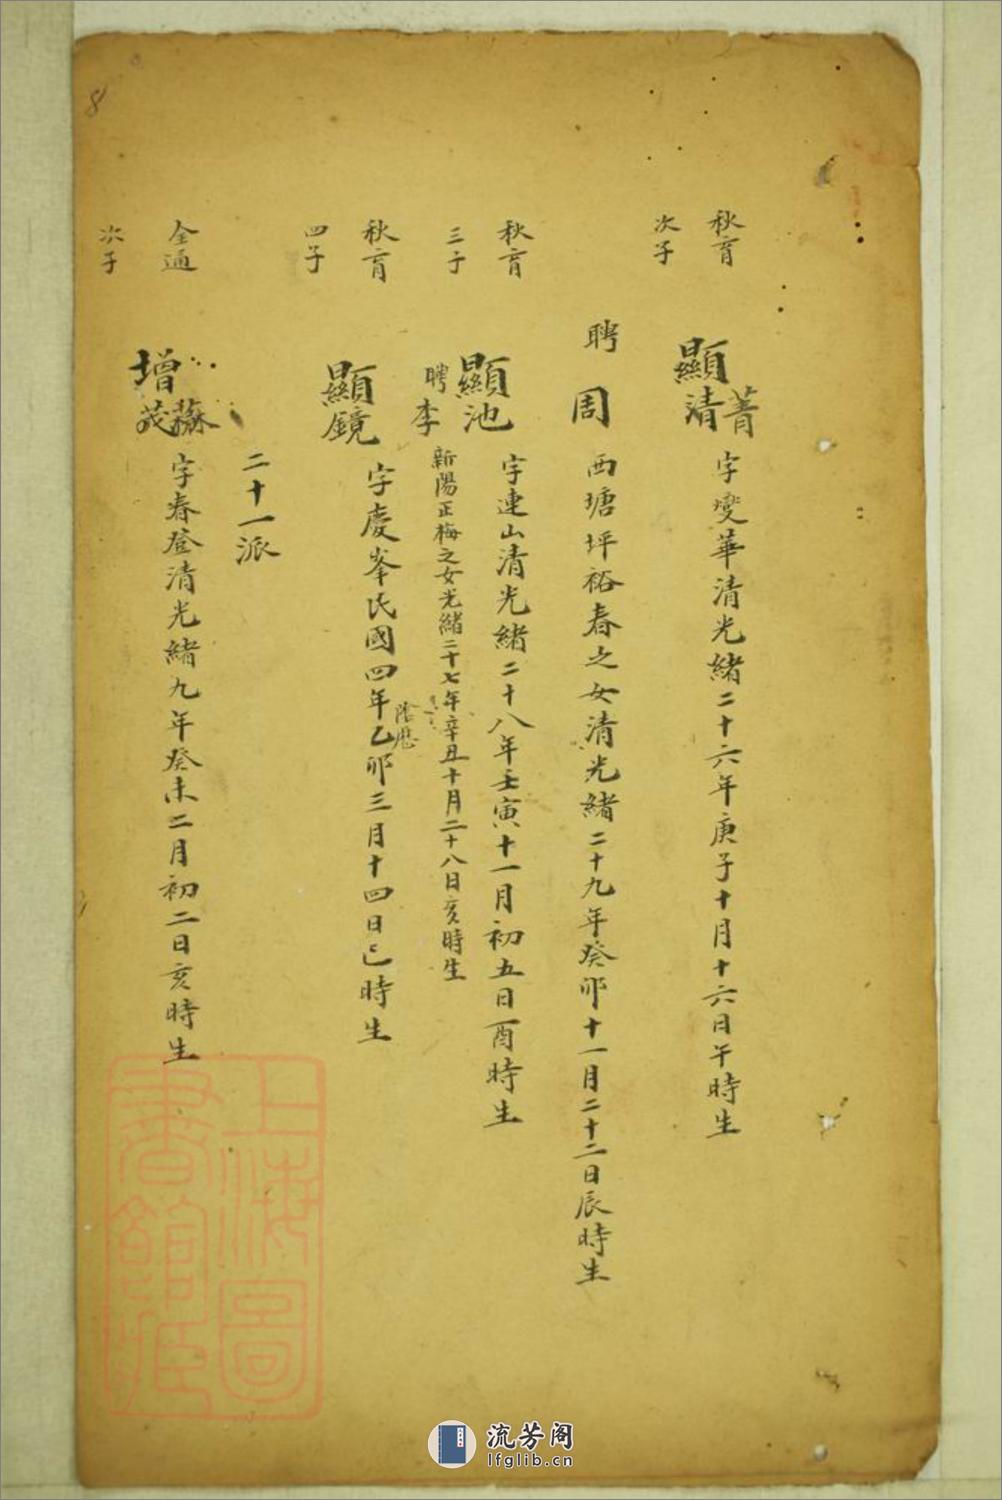 秋育
次子
顯清菁
字燮華清光緒二十六年庚子十月十六日午時生
聘周
西塘坪裕春之女清光緒二十九年癸卯十一月二十二日辰時生
秋育
三子
顯池
字連山清光緒二十八年壬寅十一月初五日酉時生
聘李
新陽正梅之女光緒二十七年辛丑十月二十八日亥時生
秋育
四子
顯鏡
字慶峯民國四年乙卯三月十四日巳時生
陰歷
二十一派
全通
次子
增茂
字春登清光緒九年癸未二月初二日亥時生
8
上海圖
書館藏
流芳阁
lfglib.cn